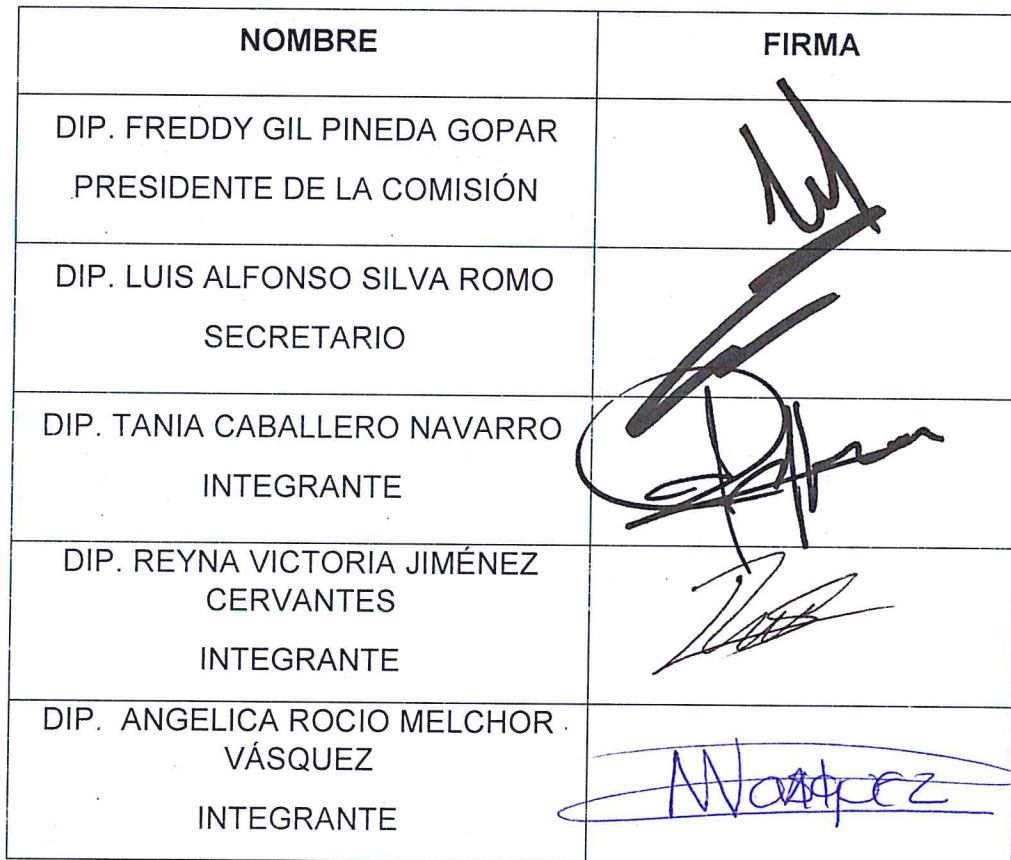 NOMBRE
FIRMA
DIP. FREDDY GIL PINEDA GOPAR
PRESIDENTE DE LA COMISIÓN
DIP. LUIS ALFONSO SILVA ROMO
SECRETARIO
DIP. TANIA CABALLERO NAVARRO
INTEGRANTE
DIP. REYNA VICTORIA JIMÉNEZ
CERVANTES
INTEGRANTE
DIP. ANGELICA ROCIO MELCHOR
VÁSQUEZ
INTEGRANTE